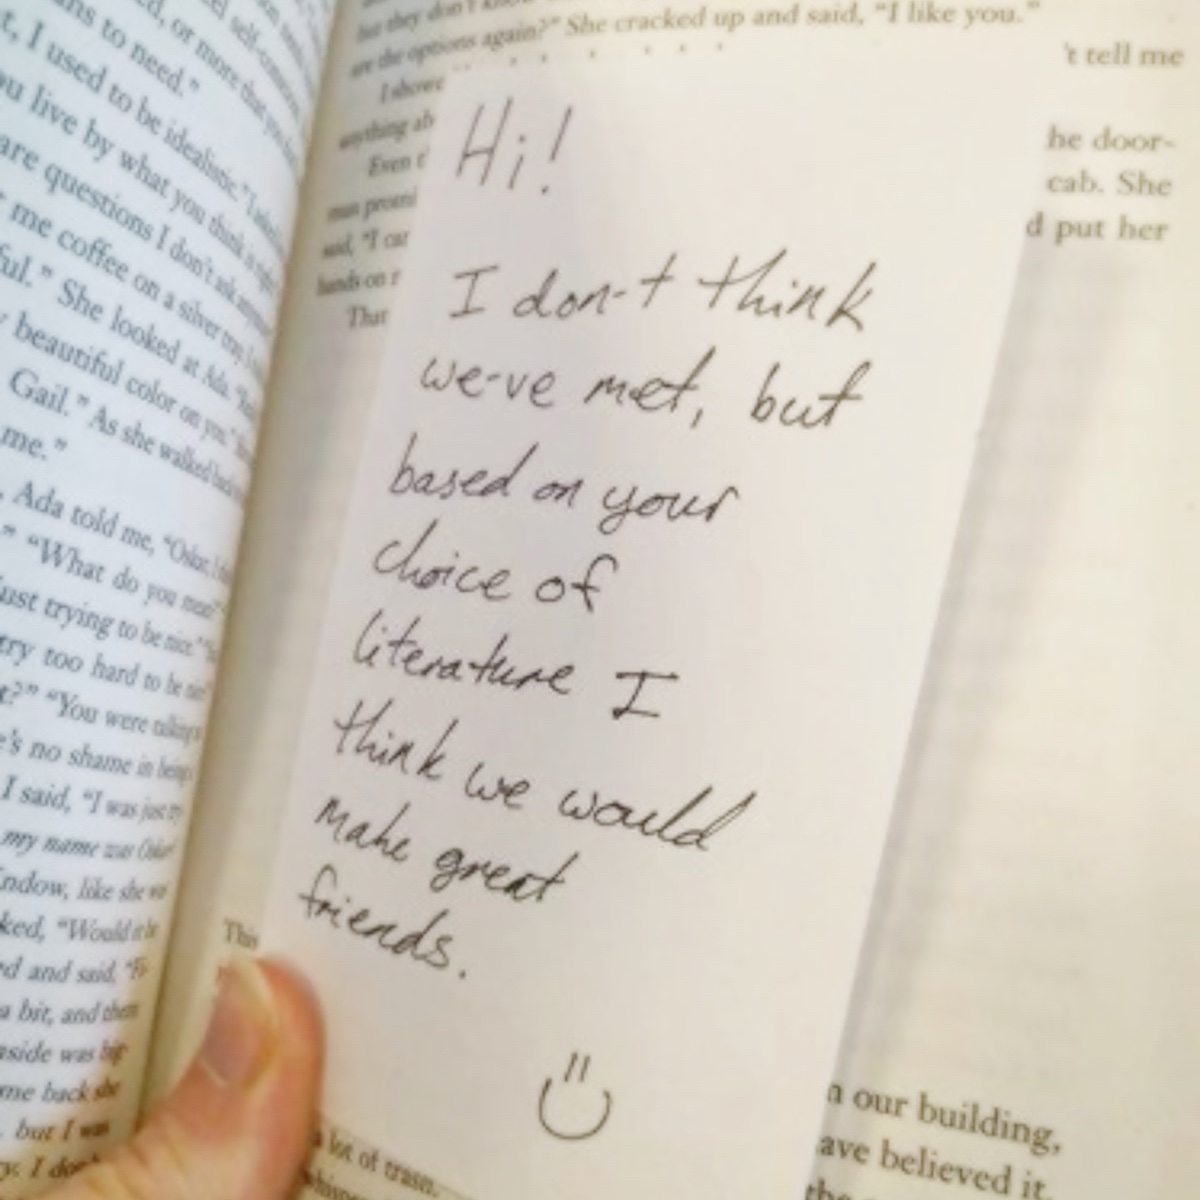 ns to need."
t, I used to be idealistic."
ou live by what you think
are questions I don't ask
me coffee on a silver tray
ful." She looked at Ada.
beautiful color on you."
Gail." As she walked back
me."
Ada told me, "Oskar,
" "What do you mean?"
ust trying to be nice."
try too hard to be
t?" "You were talking
e's no shame in being
I said, "I was just try
my name was Oskar
indow, like she wa
ked, "Would it be
ed and said,
a bit, and then
nside was big
me back she
but I was
ry. I don't
but they don't know
are the options again?" She cracked up and said, "I like you."
I showe
't tell me
anything ab
he door-
Even
cab. She
man promi
d put her
said, "I can
hands on
That
Hi!
I don-t think
we-ve met, but
based on your
choice of
literature I
think we would
make great
friends.
This
a lot of trash.
whispe
n our building,
ave believed it
the